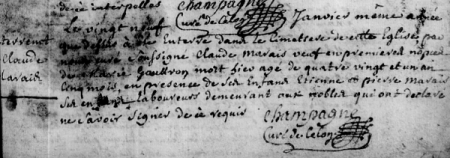 deux interpolles Champagne
curé de Celon
Le vingt neuf Janvier meme année
a été Enterré dans le Cimettiere de cette Eglise par
Claude nous curé soussigné Claude Marais veuf en premieres nopces
Marais de Marie Gaullron mort hier agé de quatre vingt et un an
Cinq mois, en presence de ses Enfans Etienne et pierre Marais
laboureurs demeurant aux nobles qui ont declaré
ne sçavoir signer de ce requis
Champagne
Curé de Celon